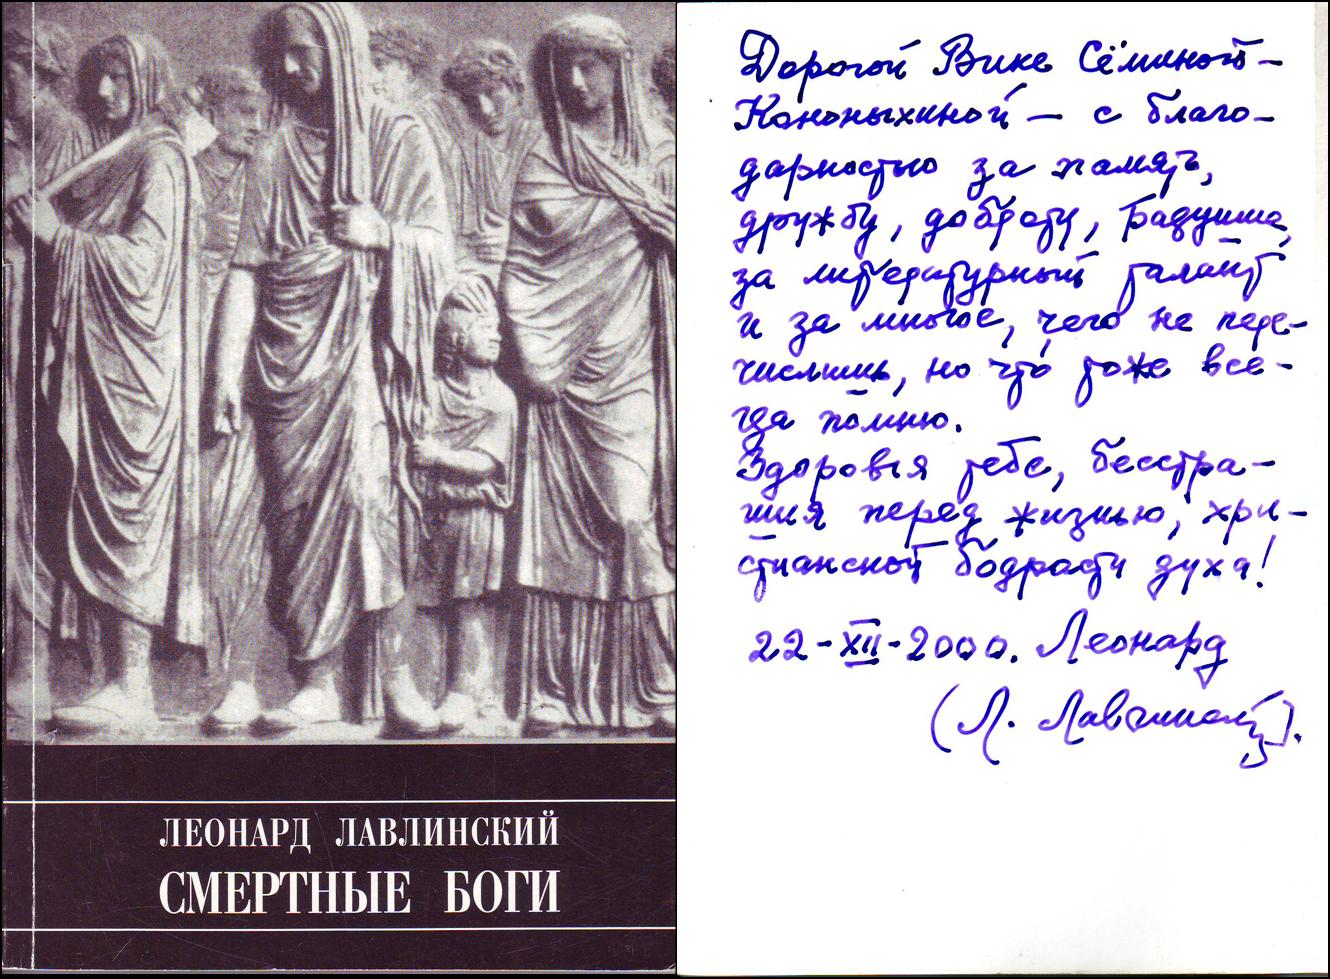 ЛЕОНАРД ЛАВЛИНСКИЙ
СМЕРТНЫЕ БОГИ
Дорогой Вике Сёминой-
Кононыхиной — с благо-
дарностью за память,
дружбу, доброту, радушие,
за литературный талант
и за многое, чего не пере-
числишь, но что́ тоже все-
гда помню.
Здоровья тебе, бесстра-
шия перед жизнью, хри-
стианской бодрости духа!
22-XII-2000. Леонард
(Л. Лавлинский).